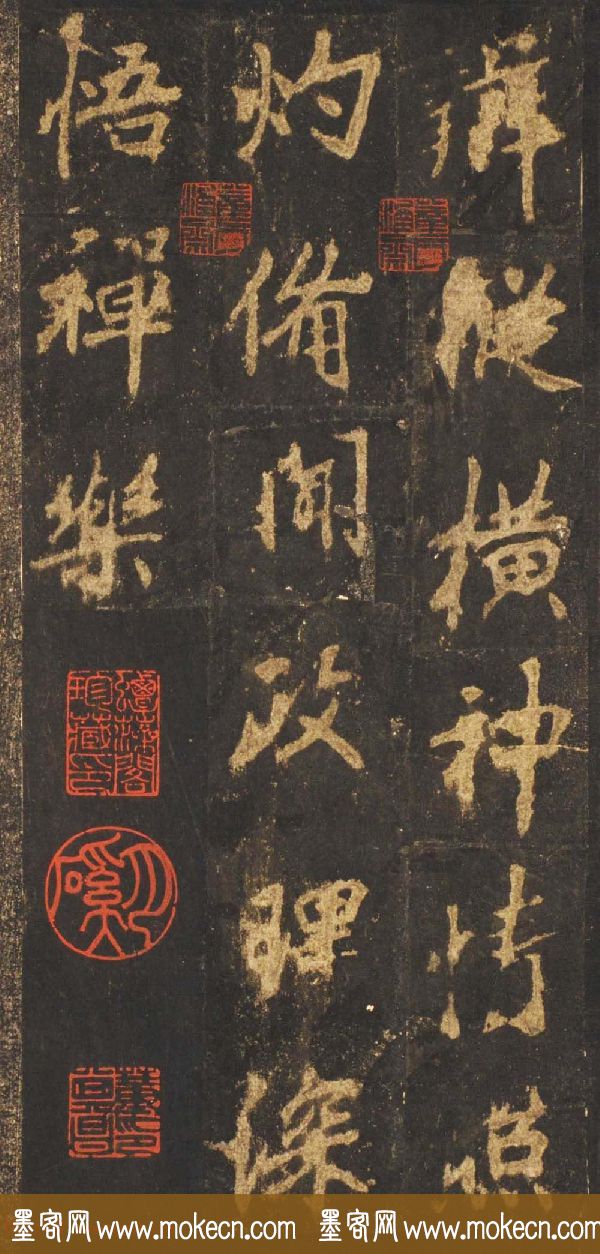 辯縱橫神情照
灼備聞政理深
悟禪樂
墨客网www.mokecn.com 墨客网www.mokecn.com